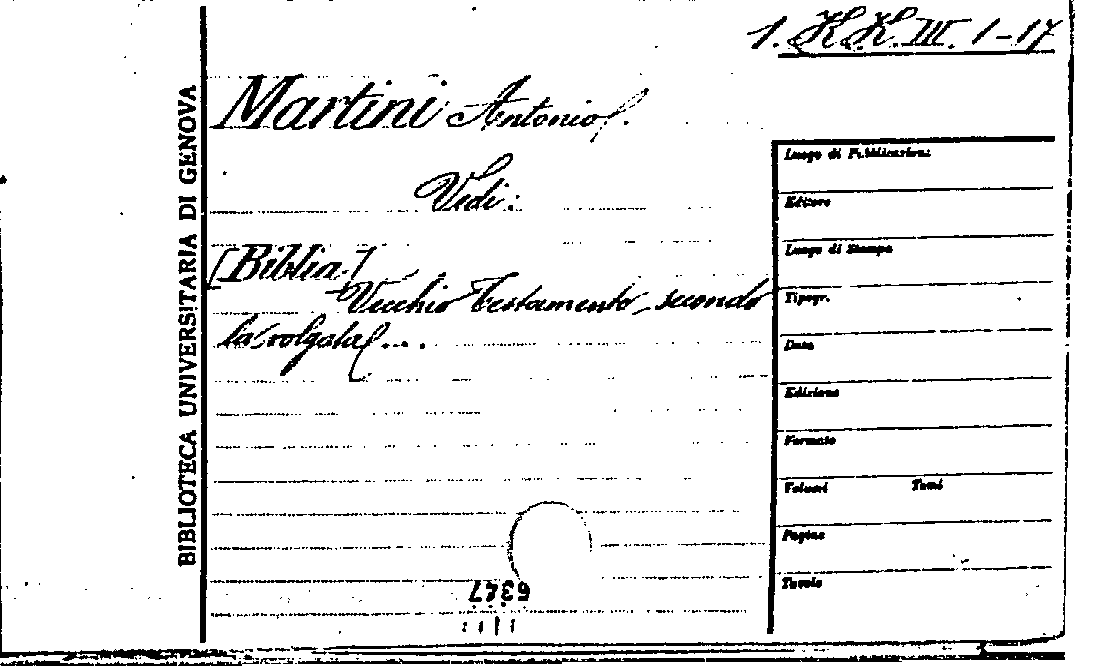 1. K.K. III. 1-17
Martini Antonio.
Vedi:
[Biblia]
Vecchio Testamento secondo
la volgata ....
BIBLIOTECA UNIVERSITARIA DI GENOVA
Luogo di Pubblicazione
Editore
Luogo di Stampa
Tipogr.
Data
Edizione
Formato
Volumi Tomi
Pagine
Tavole
6347